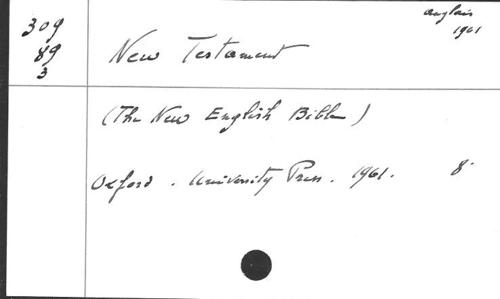 309
89
3
anglais
1961
New Testament
(The New English Bible)
Oxford. University Press. 1961. 8°